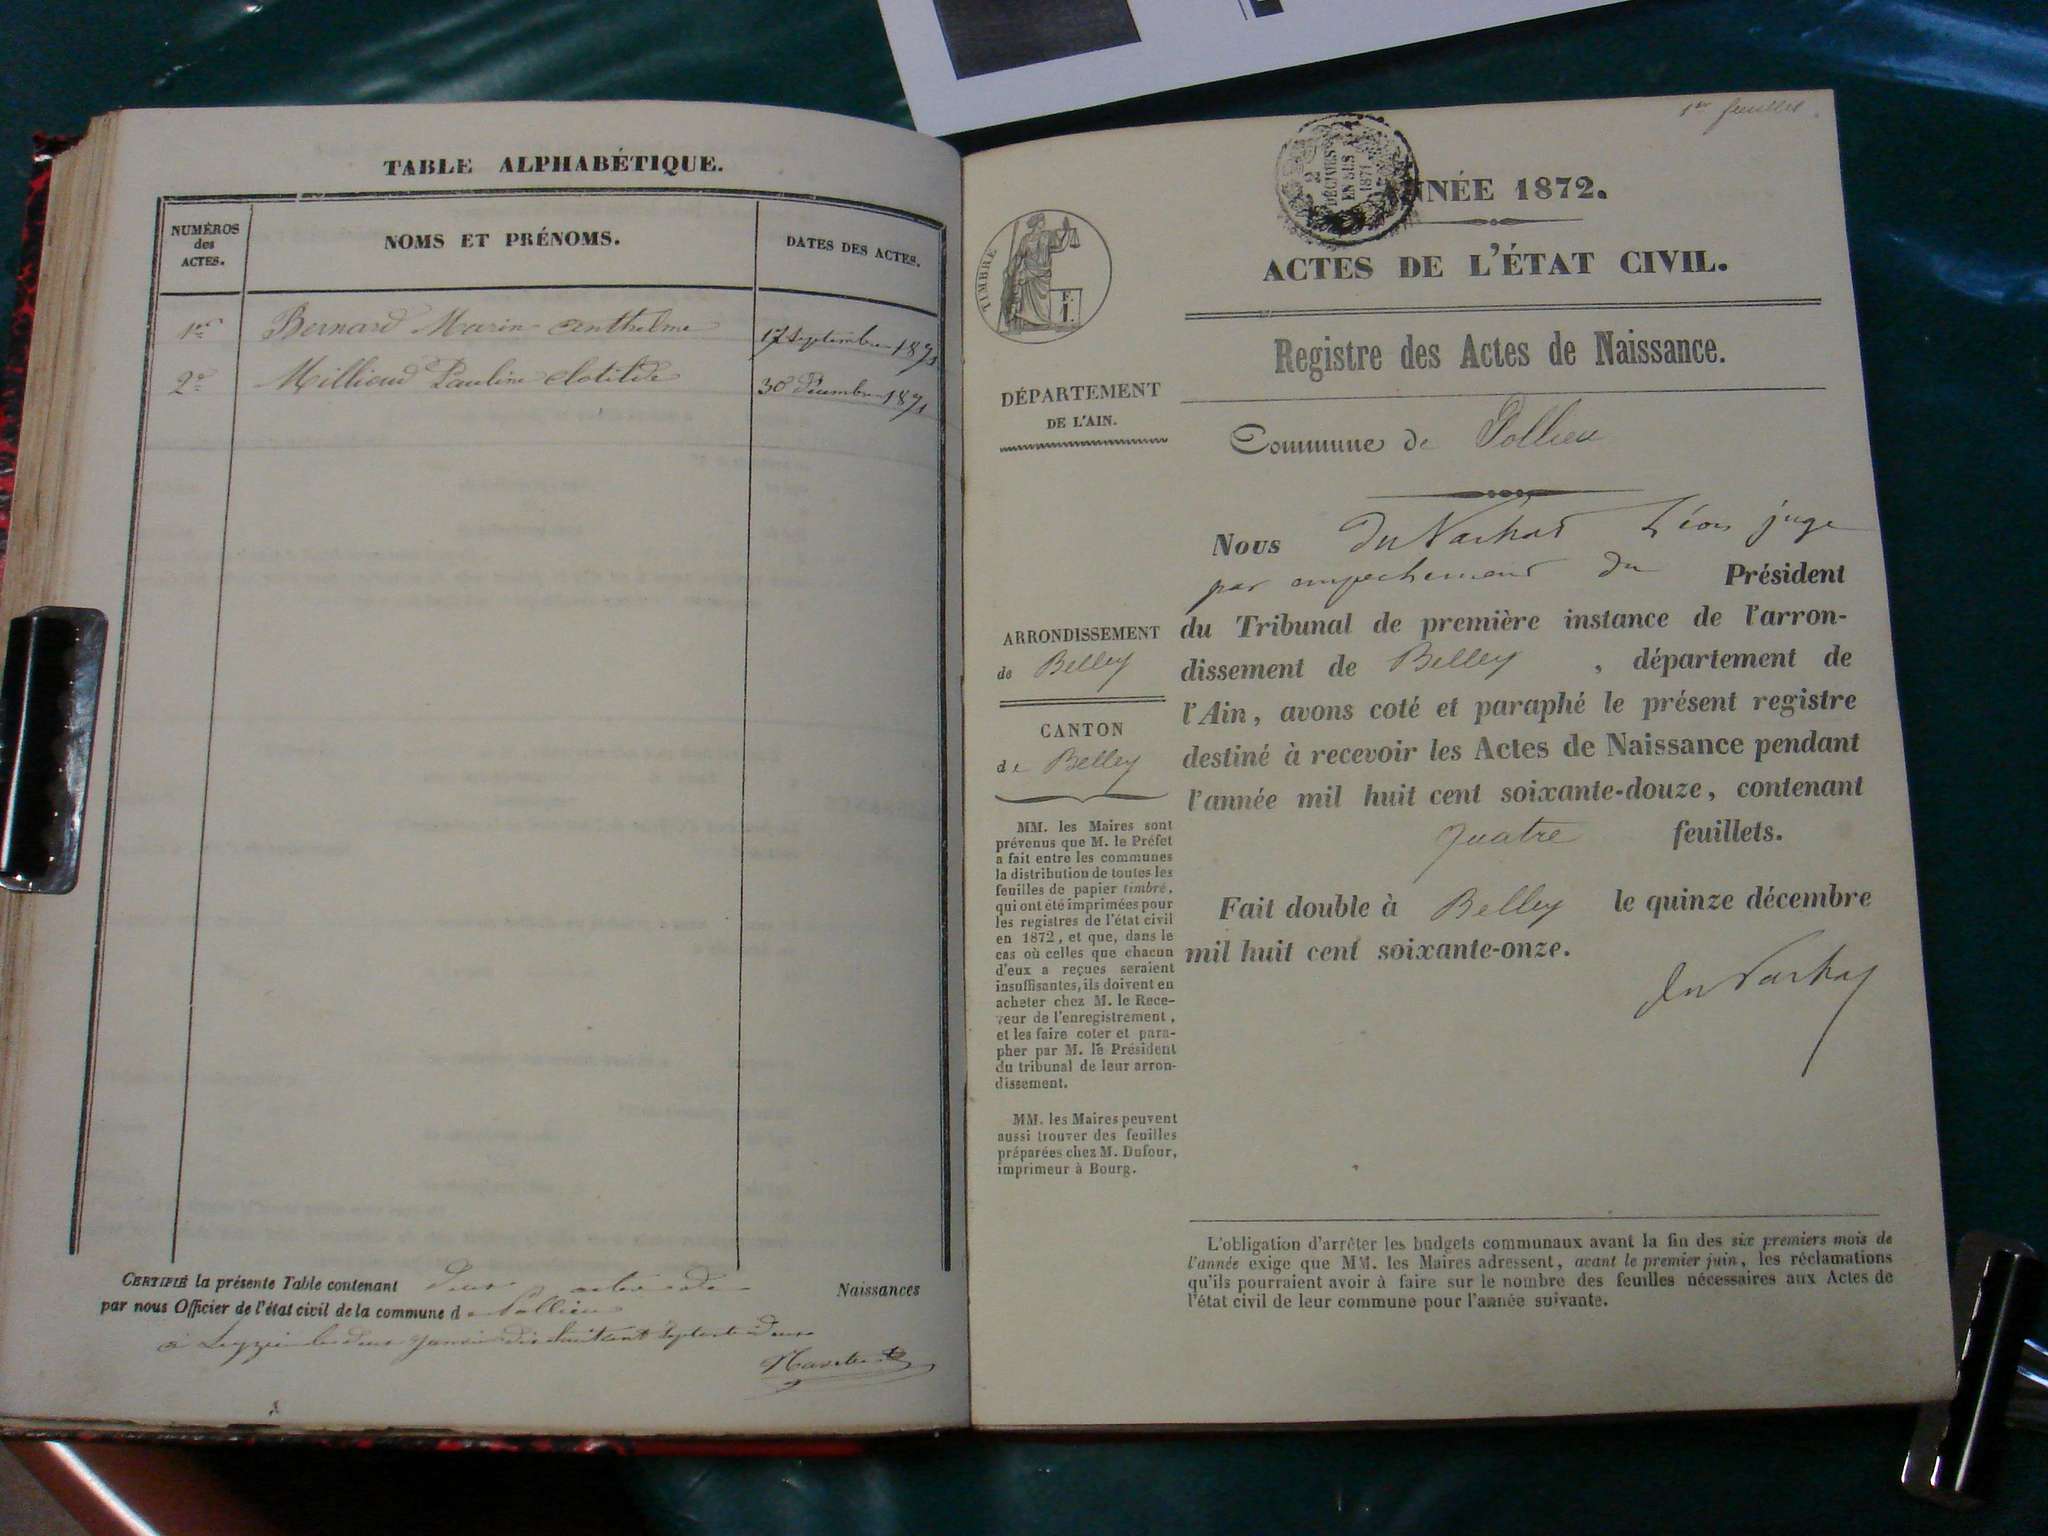 TABLE ALPHABÉTIQUE.
NUMÉROS
des
ACTES.
NOMS ET PRÉNOMS.
DATES DES ACTES.
1er Bernard Marin Anthelme 17 Septembre 1871
2e Milliond Pauline Clotilde 30 Décembre 1871
CERTIFIÉ la présente Table contenant Deux actes de Naissances
par nous Officier de l'état civil de la commune de Pollieu
le deux Janvier dix huit cent septante deux
1er feuillet
2
DÉCIMES
EN SUS
1871
ANNÉE 1872.
ACTES DE L'ÉTAT CIVIL.
TIMBRE
F.
1.
Registre des Actes de Naissance.
DÉPARTEMENT
DE L'AIN.
Commune de Pollieu
Nous du Vachat Léon juge
par empechement du Président
du Tribunal de première instance de l'arron-
dissement de Belley, département de
l'Ain, avons coté et paraphé le présent registre
destiné à recevoir les Actes de Naissance pendant
l'année mil huit cent soixante-douze, contenant
quatre feuillets.
Fait double à Belley le quinze décembre
mil huit cent soixante-onze.
du Vachat
ARRONDISSEMENT
de Belley
CANTON
de Belley
MM. les Maires sont
prévenus que M. le Préfet
a fait entre les communes
la distribution de toutes les
feuilles de papier timbré,
qui ont été imprimées pour
les registres de l'état civil
en 1872, et que, dans le
cas où celles que chacun
d'eux a reçues seraient
insuffisantes, ils doivent en
acheter chez M. le Rece-
veur de l'enregistrement,
et les faire coter et para-
pher par M. le Président
du tribunal de leur arron-
dissement.
MM. les Maires peuvent
aussi trouver des feuilles
préparées chez M. Dufour,
imprimeur à Bourg.
L'obligation d'arrêter les budgets communaux avant la fin des six premiers mois de
l'année exige que MM. les Maires adressent, avant le premier juin, les réclamations
qu'ils pourraient avoir à faire sur le nombre des feuilles nécessaires aux Actes de
l'état civil de leur commune pour l'année suivante.